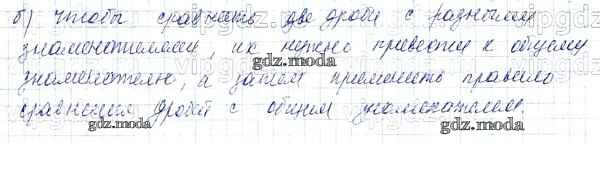 б) Чтобы сравнить две дроби с разными
знаменателями, их нужно привести к общему
знаменателю, а затем применить правило
сравнения дробей с общим знаменателем.
gdz.moda
gdz.moda
gdz.moda
gdz.moda
gdz.moda